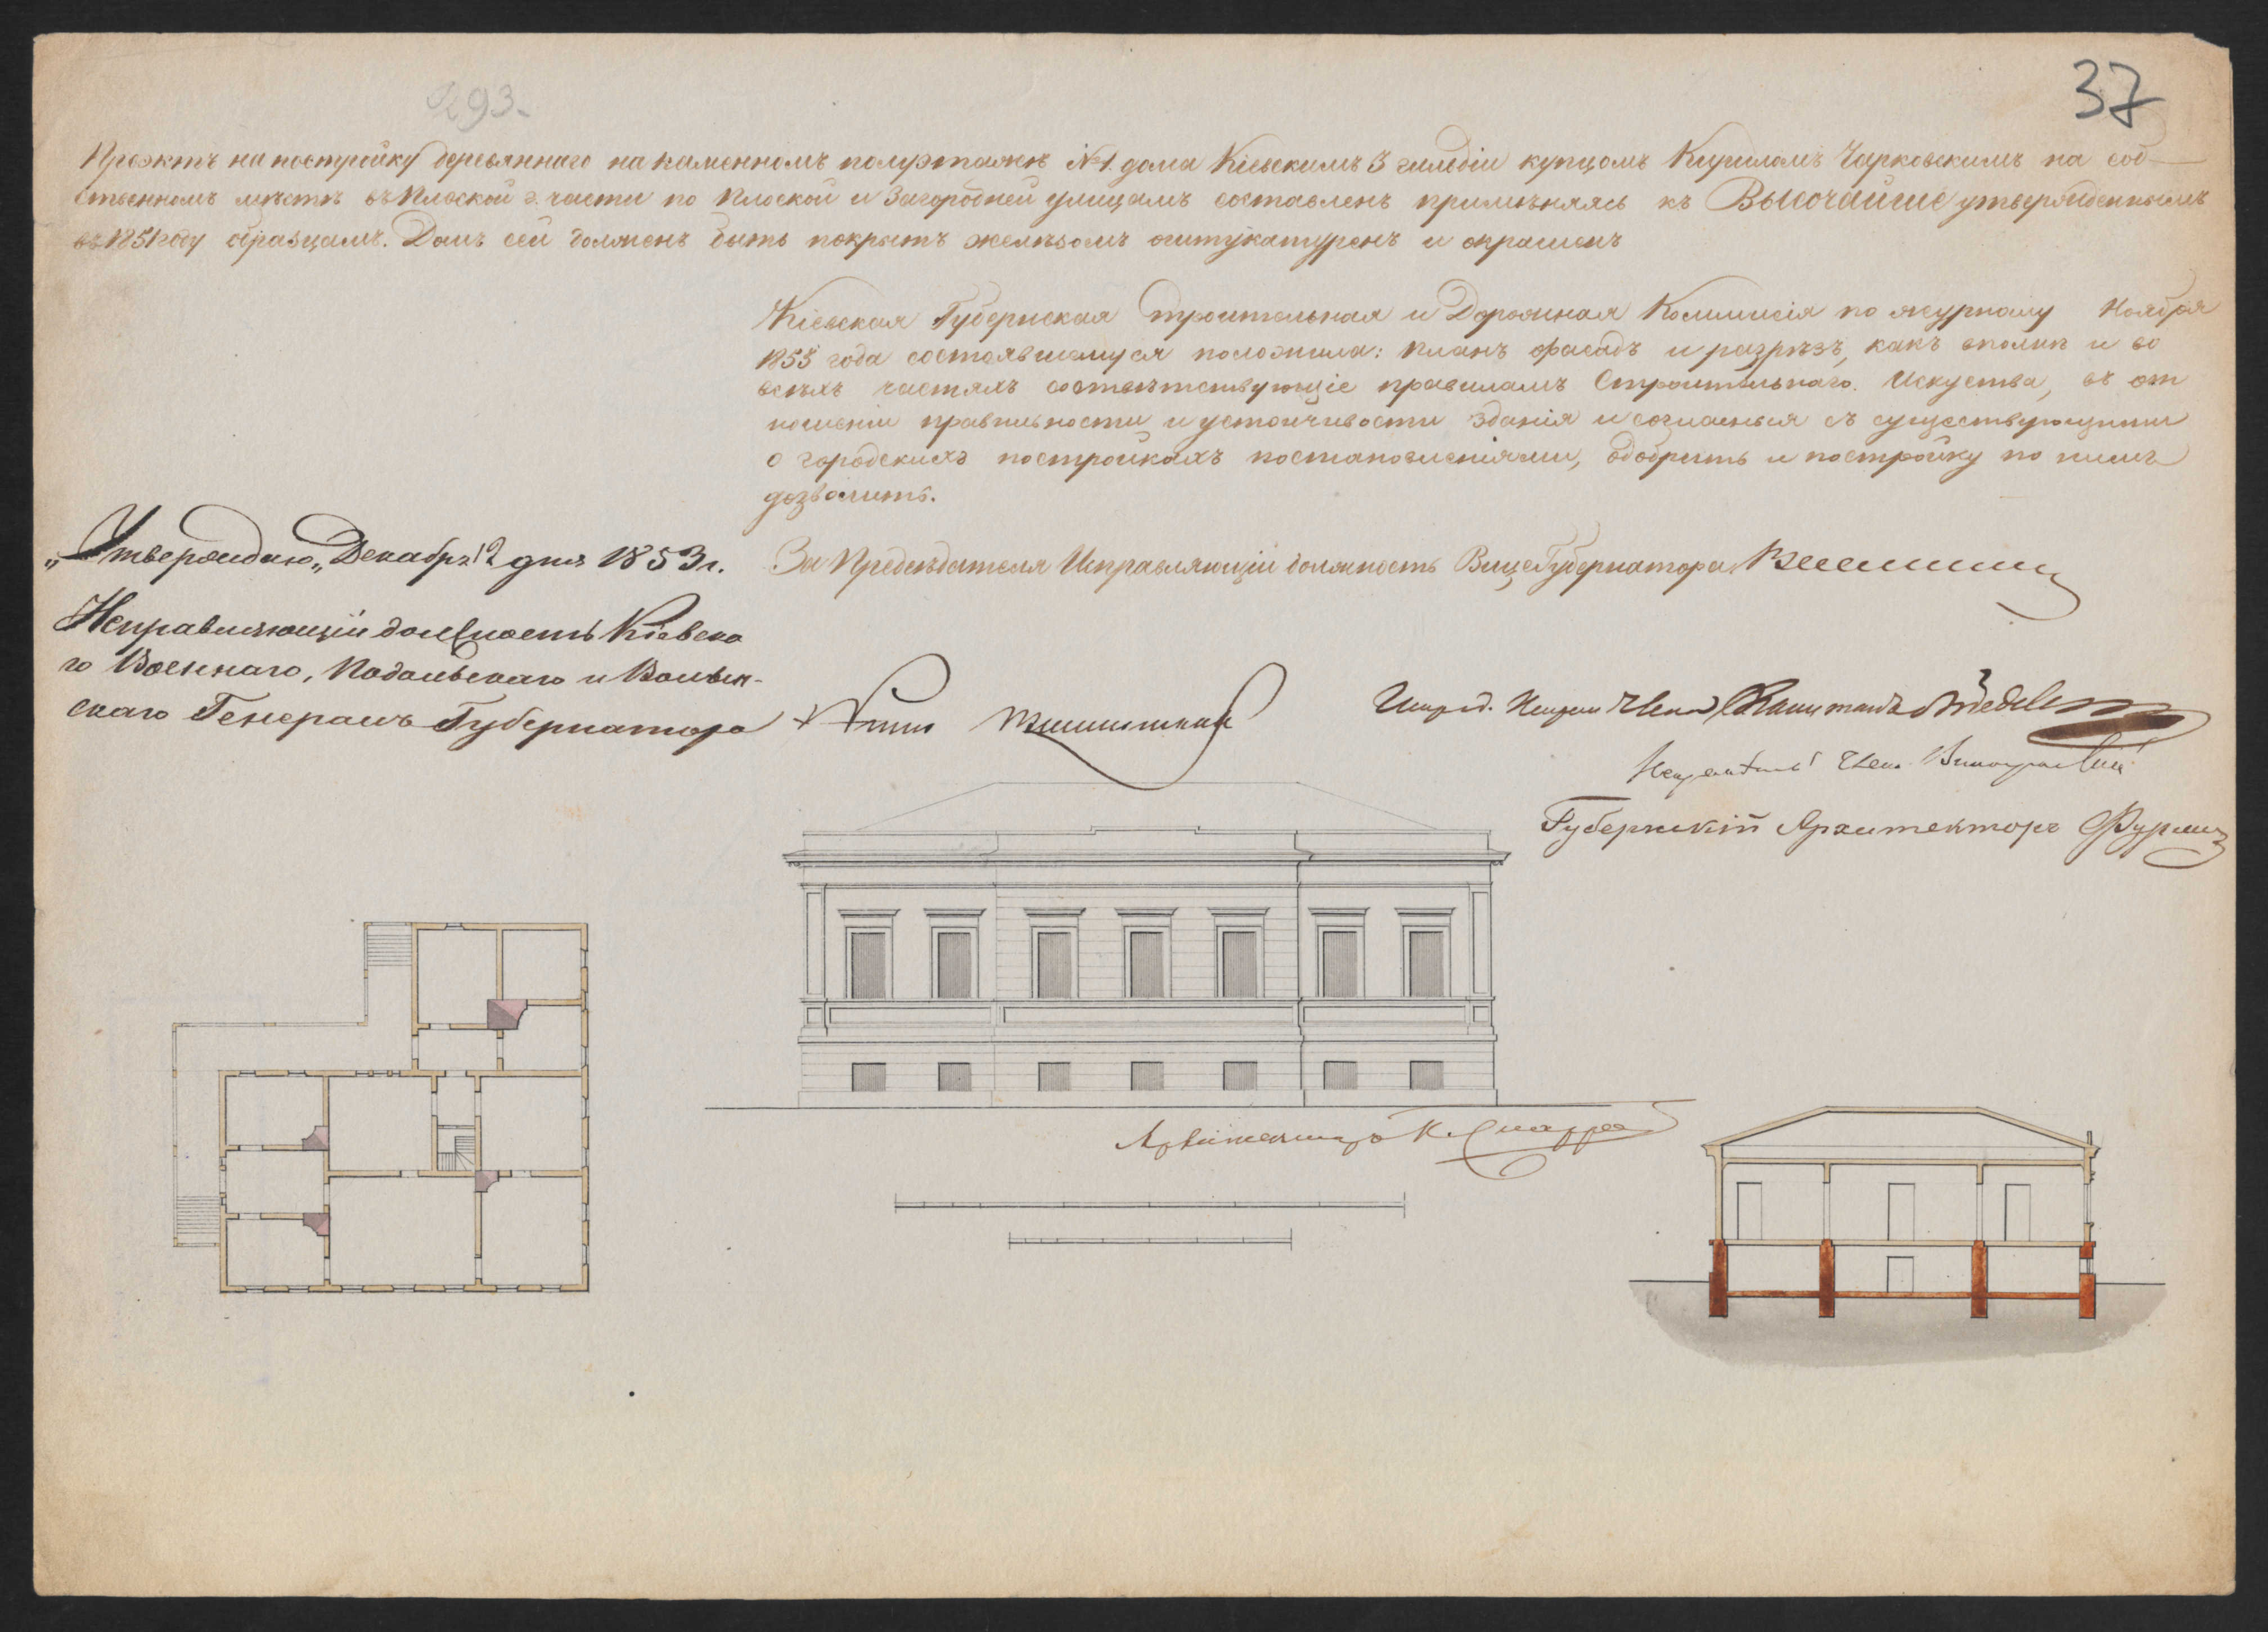 293.
37
Проэктъ на постройку деревяннаго на каменномъ полуэтажѣ №1. дома Кіевскимъ 3 гильдіи купцомъ Кириломъ Чарковскимъ на соб-
ственномъ мѣстѣ въ Плоской г. части по Плоской и Загородней улицамъ составленъ примѣняясь къ Высочайше утвержденнымъ
въ 1851 году образцамъ. Домъ сей долженъ быть покрытъ желѣзомъ оштукатуренъ и окрашенъ
Кіевская Губернская Строительная и Дорожная Коммисія по журналу Ноября
1853 года состоявшемуся положила: планъ фасадъ и разрѣзъ, какъ вполнѣ и во
всѣхъ частяхъ соотвѣтствующіе правиламъ Строительнаго Искуства, въ от
ношеніи правильности и устойчивости зданія и согласныя съ существующими
о городскихъ постройкахъ постановленіями, одобрить и постройку по нимъ
дозволить.
„Утверждаю„ Декабря 12 дня 1853 г.
За Предсѣдателя Исправляющій должность ВицеГубернатора
Исправляющій должность Кіевска
го Военнаго, Подольскаго и Волын-
скаго Генералъ Губернатора
Членъ Капитанъ
Членъ
Губернскій Архитекторъ
Архитекторъ К.